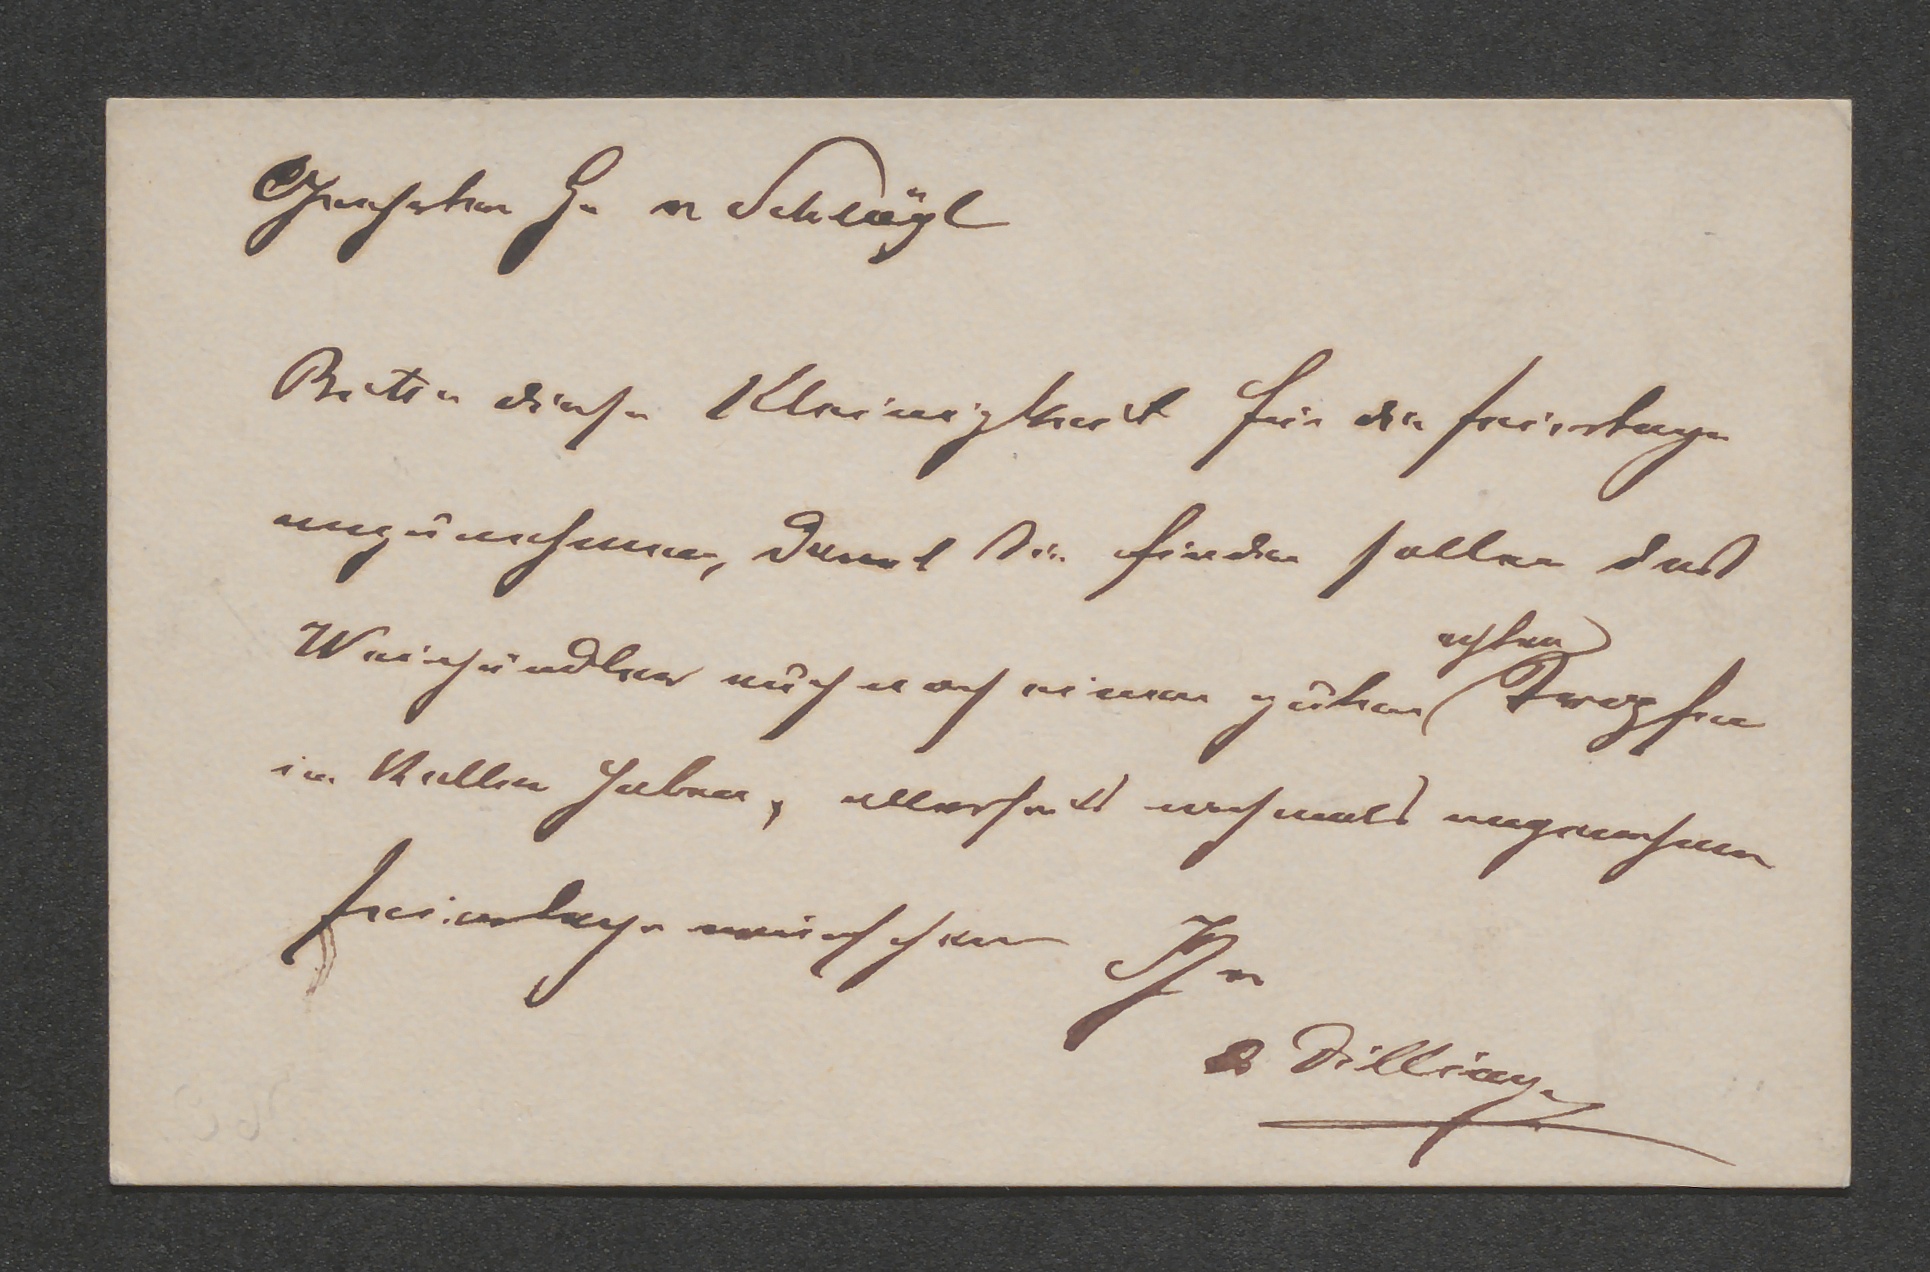 Geehrter H. v Schlögl
Bitte diese Kleinigkeit für die Feiertage
anzunehmen, damit Sie finden sollen das
Weinhändler auch noch einen guten echten Tropfen
im Keller haben, allerseits nochmals angenehme
Feiertage wünschen Ihr
Dillinger